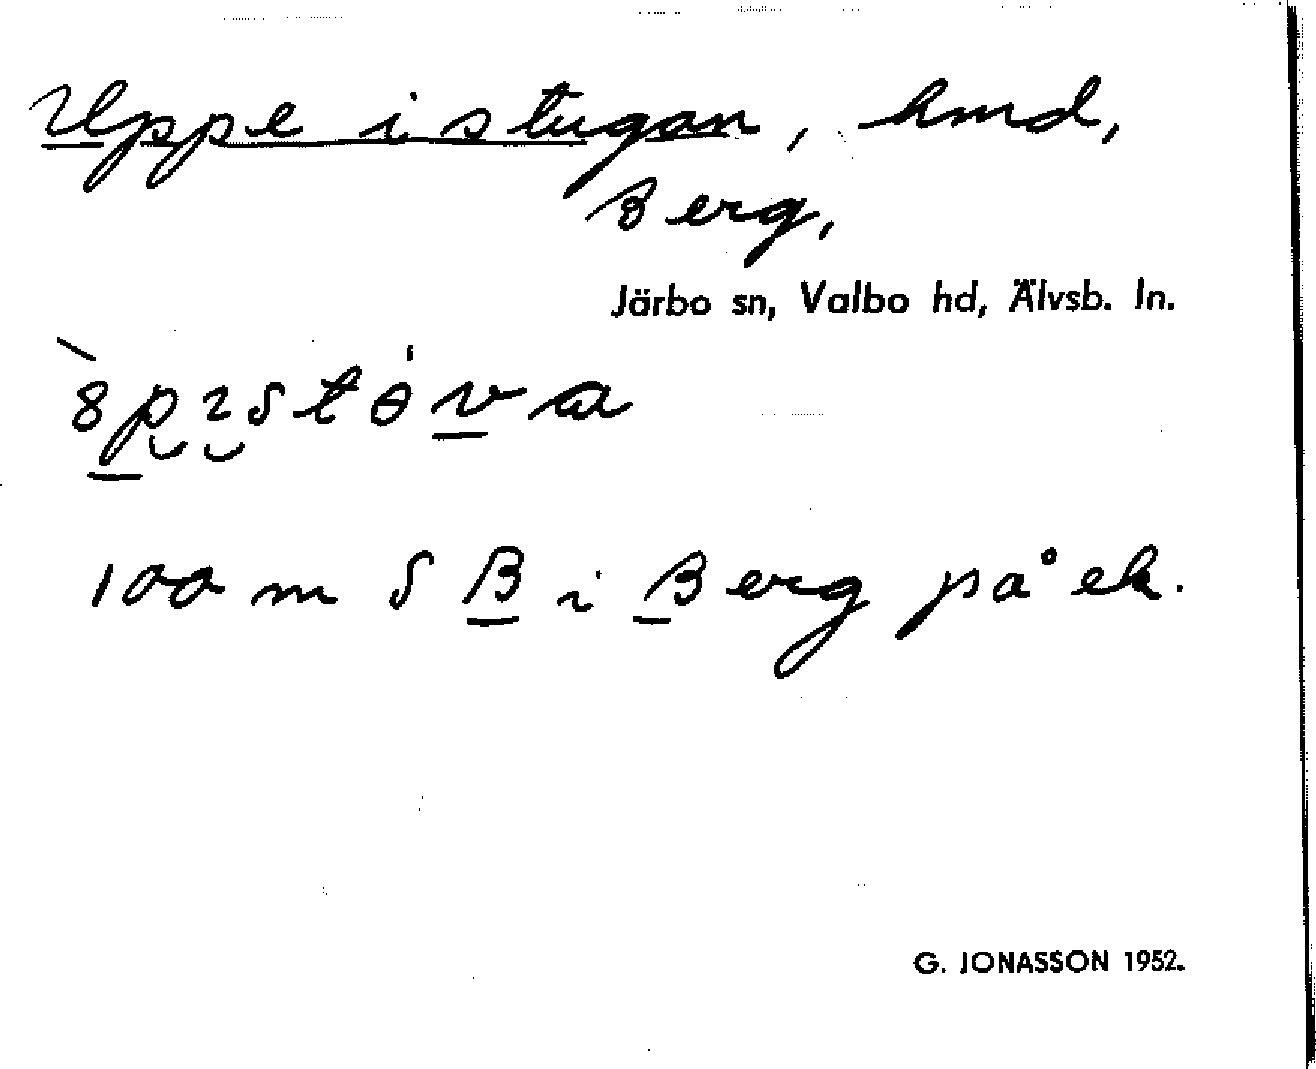 Uppe i stugan, hmd,
Berg,
Järbo sn, Valbo hd, Älvsb. ln.
100 m S B i Berg på ek.
G. JONASSON 1952.